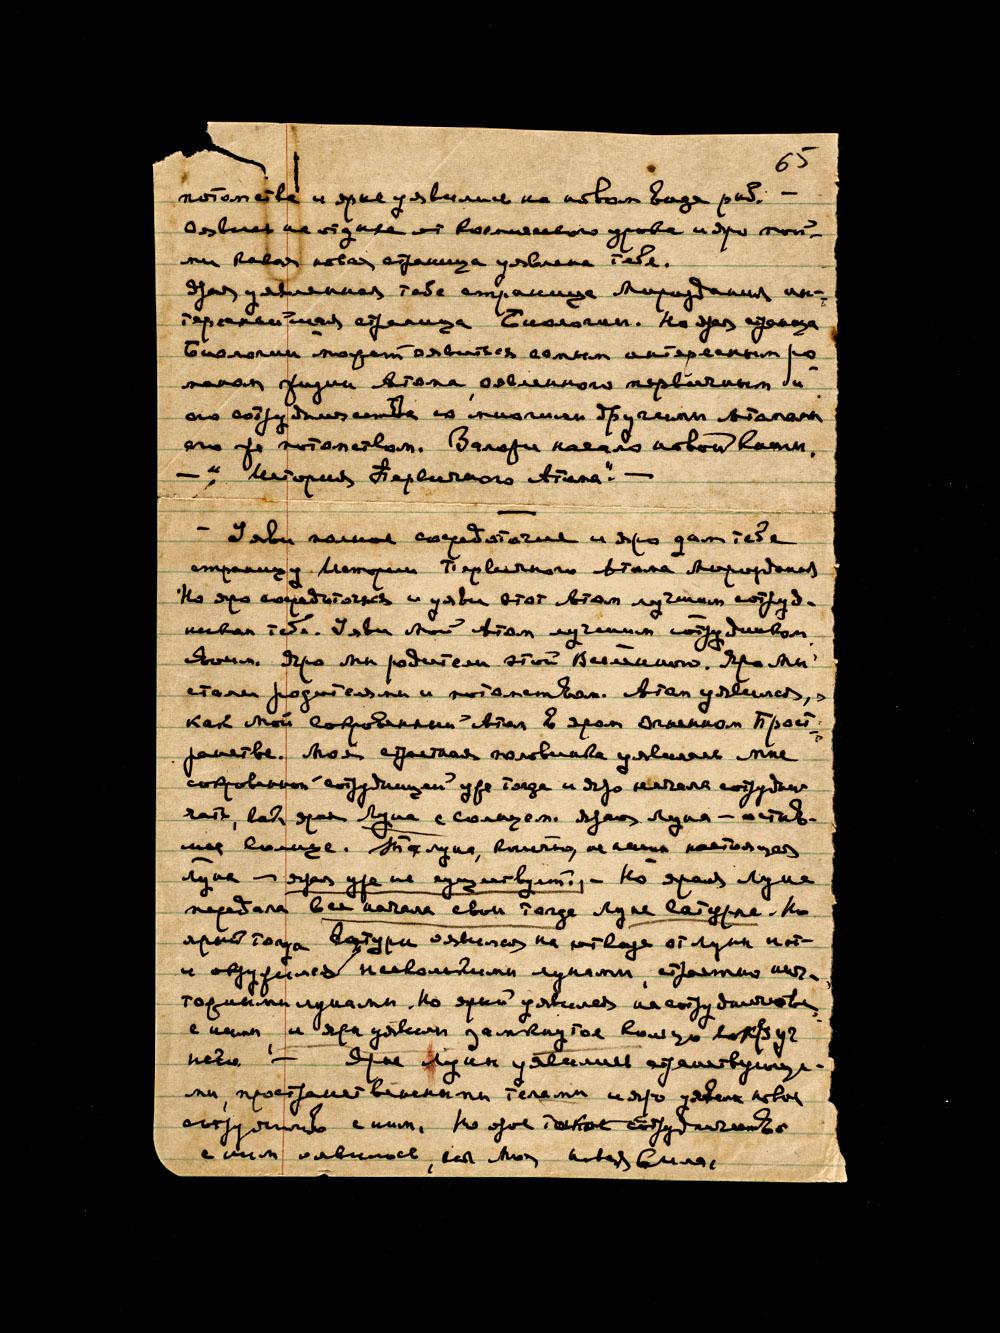 65
потомства и ярые уявились на новом виде рыб. —
Оявись на отдыхе от Космического урова и яро пой-
ми какая новая страница уявлена тебе.
Ярая уявленная тебе страница Мироздания ин-
тереснейшая страница Биологии. Но ярая страница
Биологии может оявиться самым интересным ро
маном жизни Атома, оявленного первичным и
его сотрудничества со многими другими Атомами
его же потомством. Заложи начало новой книги.
— „История Первичного Атома". —
— Уяви полное сосредоточие и яро дам тебе
страницу Истории Первичного Атома Мироздания
Но яро сосредоточься и уяви этот Атом лучшим сотруд-
ником тебе. Уяви Мой Атом лучшим сотрудником
Твоим. Яро мы родители этой Вселенной. Яро Мы
стали родителями и потомством. Атом уявился,
как Мой сокровенный Атом в яром Огненном Прост-
ранстве. Моя страстная половинка уявилась мне
сокровенной сотрудницей уже тогда и яро начала сотрудни
чать, как ярая Луна с солнцем. Ярая Луна — остыв-
шее Солнце. Та луна, конечно, не наша настоящая
Луна — ярая уже не существует, — Но ярая Луна
передала все начала свои тогда Луне Сатурна. Но
ярый тогда Сатурн оявился на отводе от луны
и окружился несколькими лунами, страстно
торными лунами. Но ярый уявился на сотрудничестве
с ними, и яри уявили замкнутое кольцо вокруг
него. — Ярые Луны уявились странствующи-
ми, пространственными телами и яро уявили новое
сотрудничество с ним. Но ярое такое сотрудничество
с ним оявилось, как Моя новая Сила,